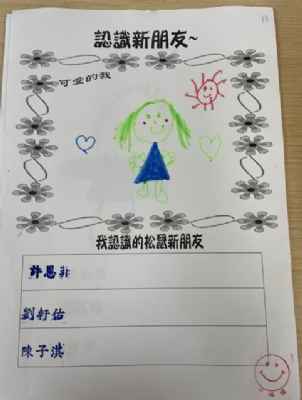 認識新朋友~
可愛的我
我認識的松鼠新朋友
許恩菲
劉軒佑
陳子淇